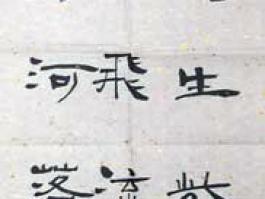 生
飛流
河落